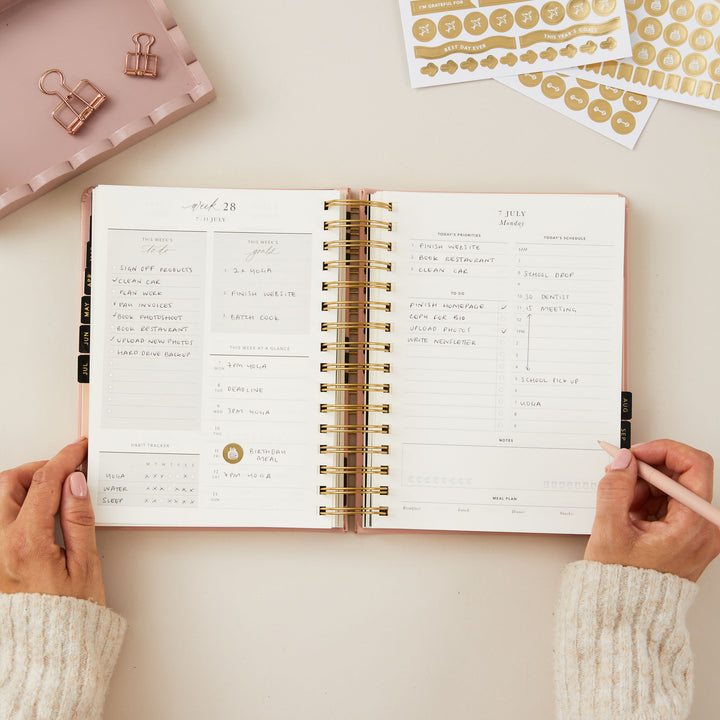 I'M GRATEFUL FOR
THIS YEAR'S GOALS
BEST DAY EVER
week 28
7-13 JULY
THIS WEEK'S
to do
SIGN OFF PRODUCTS
CLEAN CAR
PLAN WORK
PAY INVOICES
BOOK PHOTOSHOOT
BOOK RESTAURANT
UPLOAD NEW PHOTOS
HARD DRIVE BACKUP
HABIT TRACKER
M T W T F S S
YOGA
WATER
SLEEP
THIS WEEK'S
goals
1. 2 X YOGA
2. FINISH WEBSITE
3. BATCH COOK
THIS WEEK AT A GLANCE
7 MON 7PM YOGA
8 TUE DEADLINE
9 WED 3PM YOGA
10 THU
11 FRI BIRTHDAY MEAL
12 SAT 7PM YOGA
13 SUN
APR
MAY
JUN
JUL
7 JULY
Monday
TODAY'S PRIORITIES
1. FINISH WEBSITE
2. BOOK RESTAURANT
3. CLEAN CAR
TO DO
FINISH HOMEPAGE
COPY FOR BIO
UPLOAD PHOTOS
WRITE NEWSLETTER
TODAY'S SCHEDULE
7
8 SCHOOL DROP
9
10 30 DENTIST
11 15 MEETING
12
1PM
2
3
4
5 SCHOOL PICK UP
6
7 YOGA
8
9
NOTES
MEAL PLAN
Breakfast Lunch Dinner Snacks
AUG
SEP